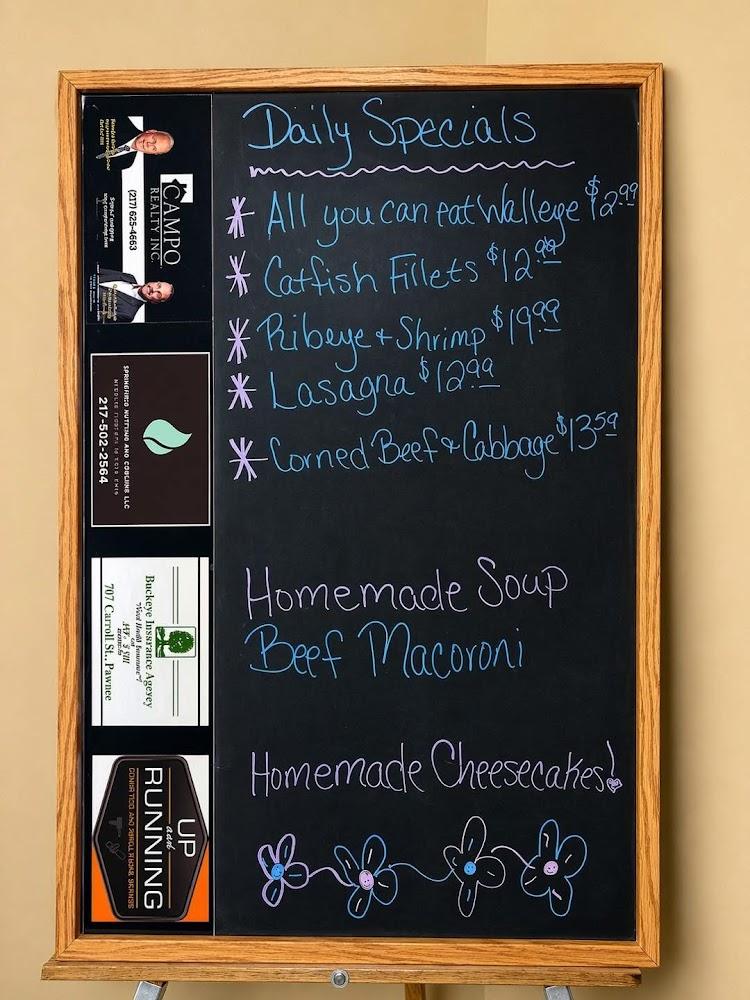 Daily Specials
* All you can eat Walleye $12.99
* Catfish Fillets $12.99
* Ribeye + Shrimp $19.99
* Lasagna $12.99
* Corned Beef & Cabbage $13.59
Homemade Soup
Beef Macoroni
Homemade Cheesecakes!
CAMPO
REALTY INC.
(217) 625-4663
217-502-2564
Buckeye Inssrance Ageyey
707 Carroll St., Pawnee
UP
and
RUNNING